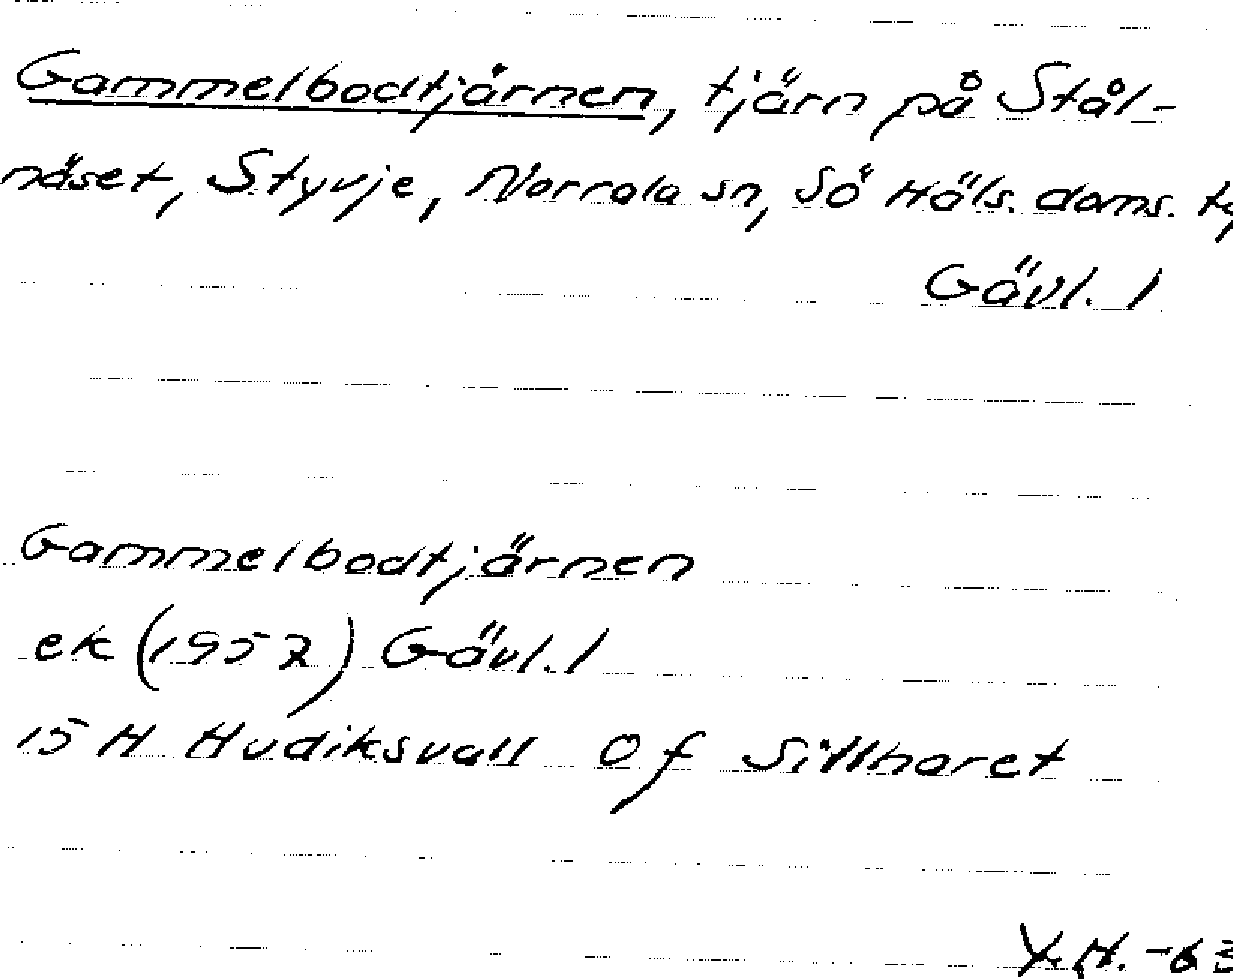 Gammelbodtjärnen, tjärn på Stål-
näset, Styvje, Norrala sn, Sö Häls. doms. t,
Gävl. l
Gammelbodtjärnen
ek (1957) Gävl. l
15 H Hudiksvall 0 f Sillharet